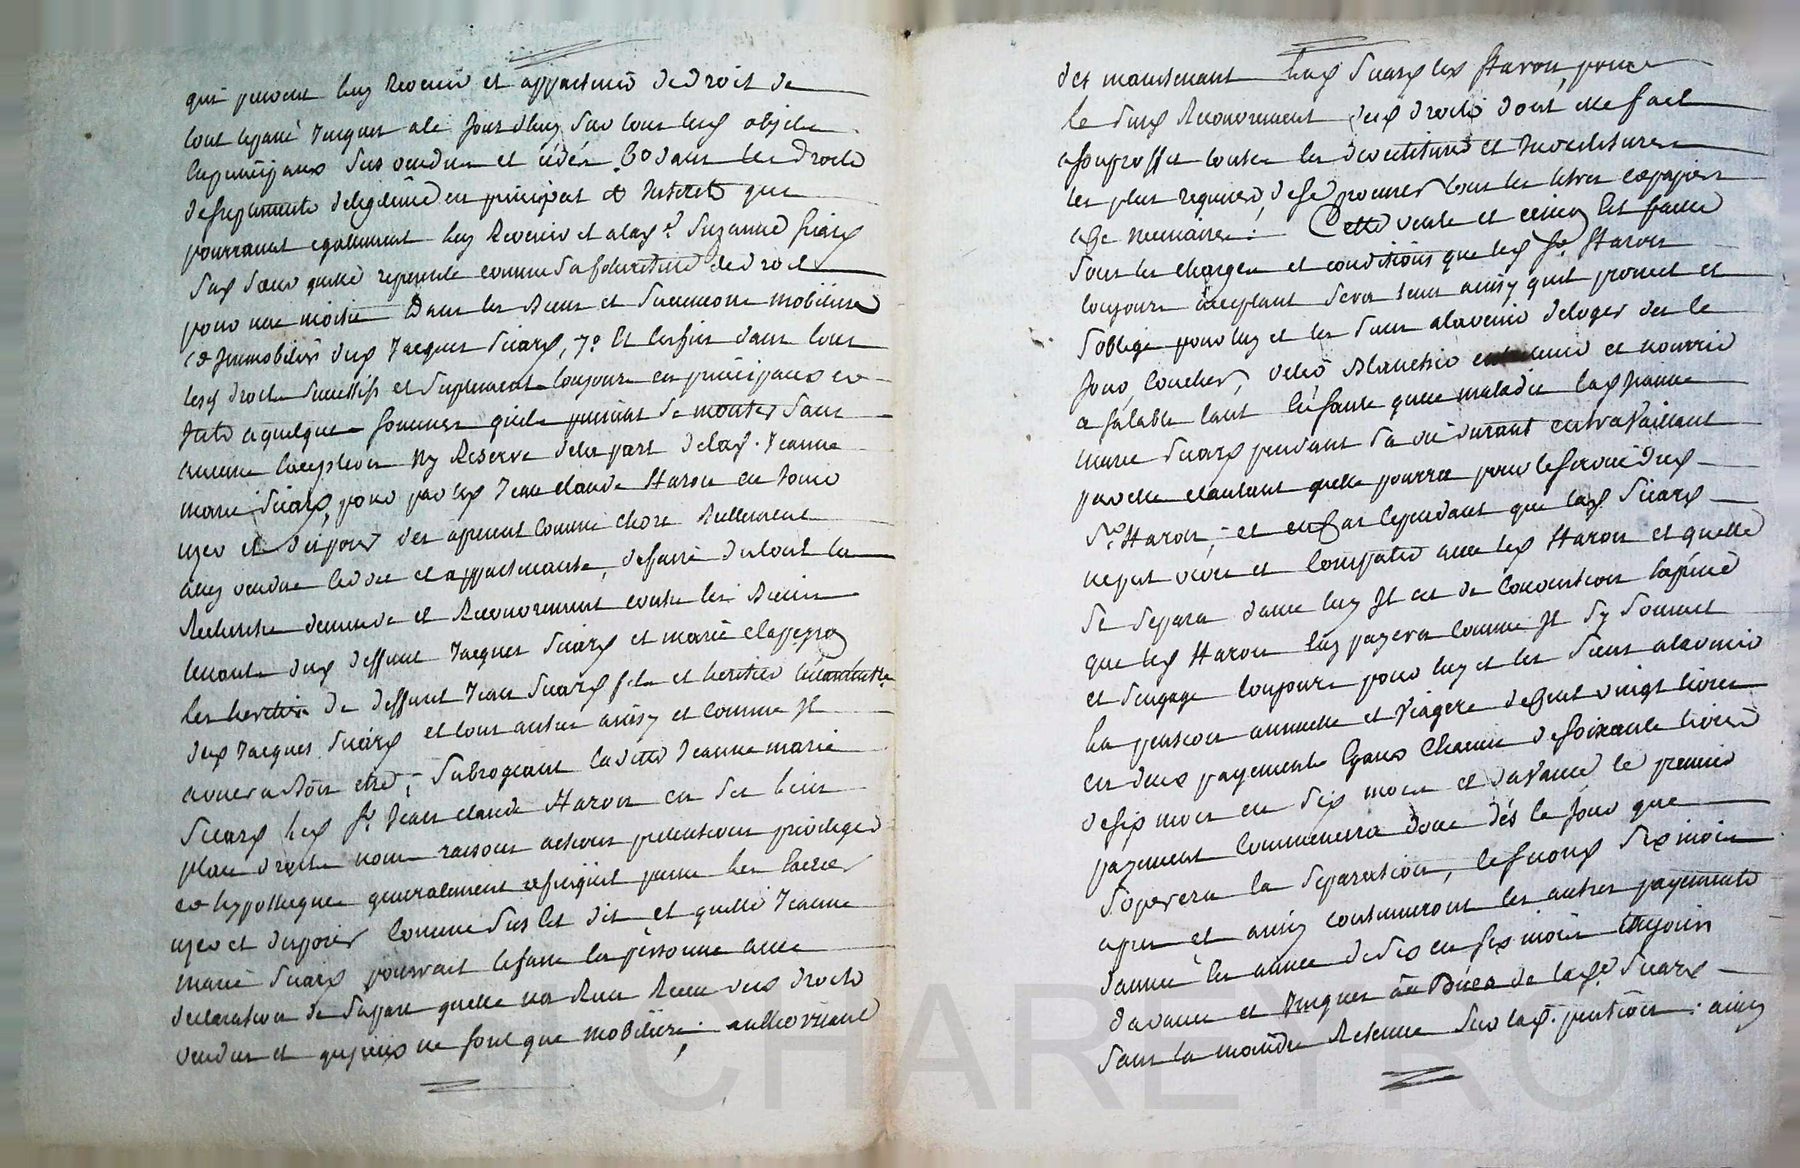 qui peuvent luy Revenir et appartenir de droit de
tout le passé jusques a ce jourdhuy sur tous lesd objets
les principaux sus vendus et cédés 6o dans les droits
de suplements de legitime en principal et Interets que
pourroient egalement luy Revenir et a lad.e Suzanne Sicard
sad sœur quelle represente comme sa de droit
pour une moitié Dans les Biens et Successions mobiliere
et Immobiliere dud Jacques Sicard, 7o Et Enfin dans tous
lesd droits Successifs et Suplements toujours en principaux et
Ints a quelques sommes quils puissent se monter Sans
aucune Exception Ny Reserve de la part de lad. Jeanne
marie Sicard, pour par led Jean claude Haron en Jouir
user et disposer des apresent Comme chose Reellement
a luy vendue cedée et appartenante, de faire du tout la
Recherche demande et Recouvrement contre les Biens
tenants dud deffunt Jacques Sicard et marie
les heritiers de deffunt Jean Sicard fils et heritier
dud Jacques Sicard et tous autres ainsy et Comme Il
avisera Bon etre; Subrogeant laditte Jeanne marie
Sicard led Sr Jean claude Haron en ses lieu
place droits noms raisons actions pretentions privileges
et hypotheques generalement quelconques pour les Exercer
user et disposer Comme dessus Est dit et quelle Jeanne
marie Sicard pourroit le faire En personne avec
declaration de sa part quelle na Rien Recu desd droits
vendus et quiceux ne sont que mobiliers; authorizant
des maintenant led Sicard led Haron, pour
le susd Recouvrement desd droits dont elle fait
a son proffit toutes les devestitures et Investitures
les plus requises, de se procurer tous les titres et papiers
a ce necessaires: Cette vente et cession Est faitte
sous les charges et conditions que led Sr Haron
toujours acceptant sera tenu ainsy quil promet et
soblige pour luy et les siens a lavenir de loger des ce
jour, Coucher, vetir Blanchir et nourrir
a sa table tant En Santé quen maladie lad Jeanne
marie Sicard pendant sa vie durant en travaillant
par elle dautant quelle pourra pour le service dud
Sr Haron; et en Cas Cependant que lad Sicard
ne put vivre et Compatir avec led Haron et quelle
se separa davec luy Il est de Convention Expresse
que led Haron luy payera Comme Il Sy Soumet
et sengage toujours pour luy et les siens a lavenir
la pension annuelle et viagere de Cent vingt livres
en deux payements Egaux Chacun de soixante livres
de six mois en six mois et davance le premier
payement Commencera donc dés le jour que
Soperera la separation, le second six mois
apres et ainsy continueront les autres payements
dannée En année de six en six mois toujours
davance et Jusques au Deces de lad.e Sicard
sans la moindre Retenue sur lad. pension: ainsy